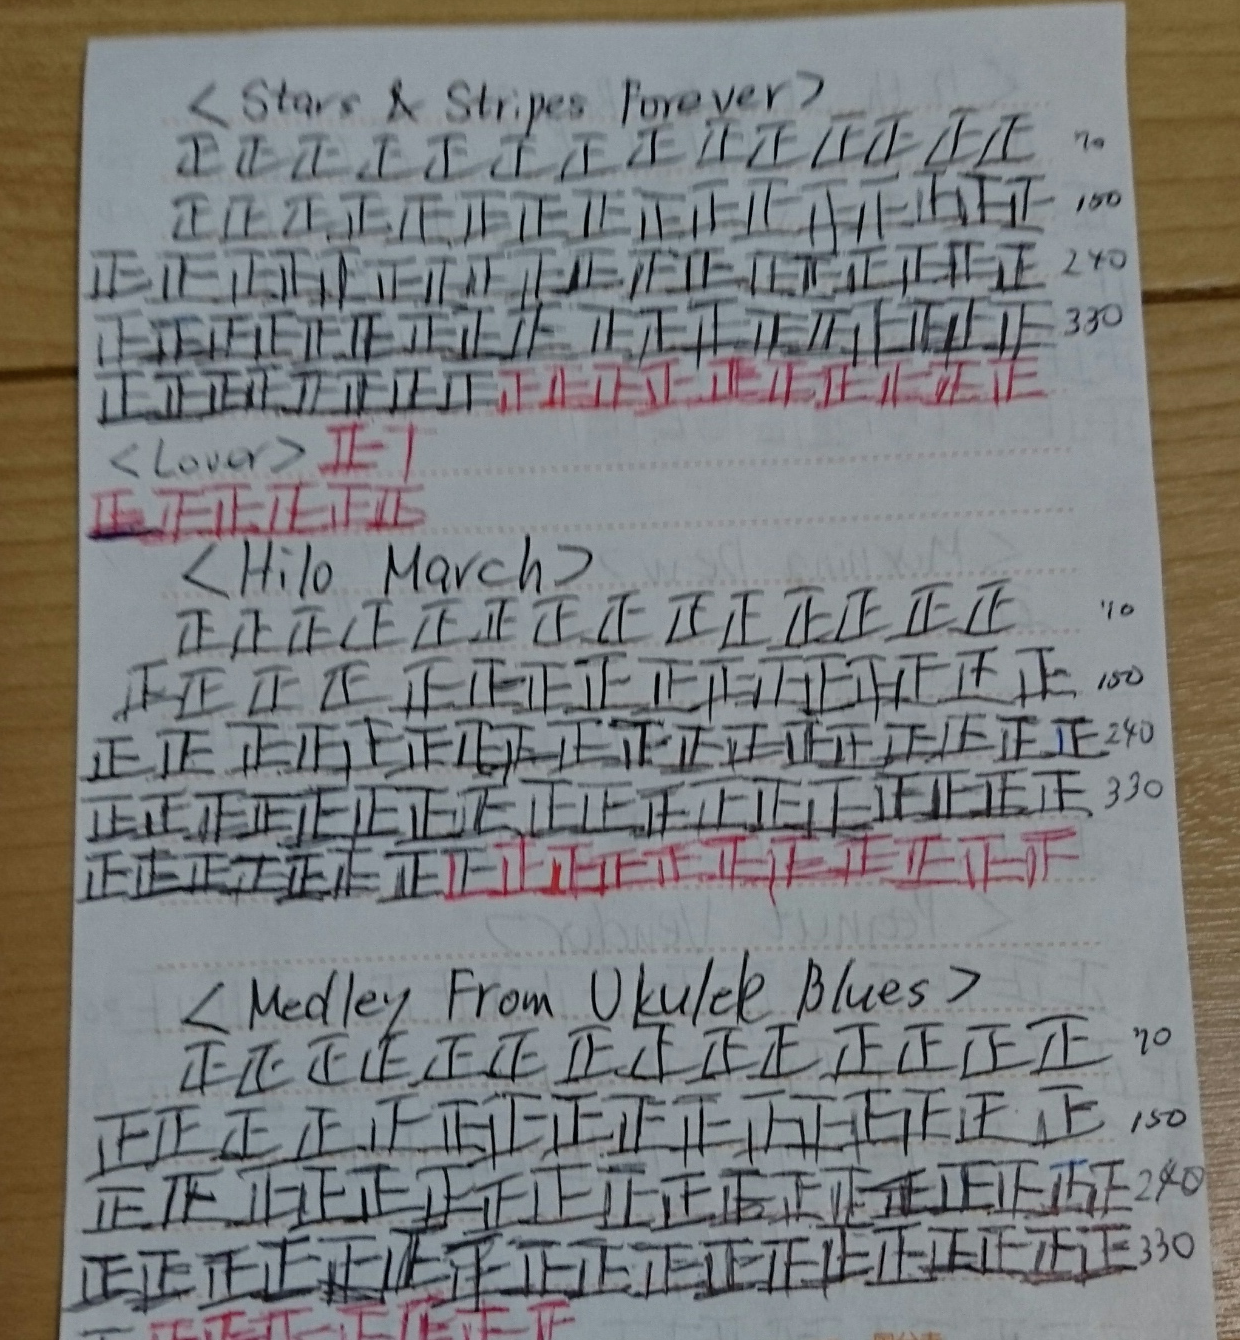 <Stars & Stripes Forever>
正正正正正正正正正正正正正正 70
正正正正正正正正正正正正正正正正 150
正正正正正正正正正正正正正正正正正正 240
正正正正正正正正正正正正正正正正正正 330
正正正正正正正正正正正正正正正正正正
<Lover> 正丅
正正正正正正
<Hilo March>
正正正正正正正正正正正正正正 70
正正正正正正正正正正正正正正正正 150
正正正正正正正正正正正正正正正正正正 240
正正正正正正正正正正正正正正正正正正 330
正正正正正正正正正正正正正正正正正正
<Medley From Ukulele Blues>
正正正正正正正正正正正正正正 70
正正正正正正正正正正正正正正正正 150
正正正正正正正正正正正正正正正正正正 240
正正正正正正正正正正正正正正正正正正 330
正正正正正正正正